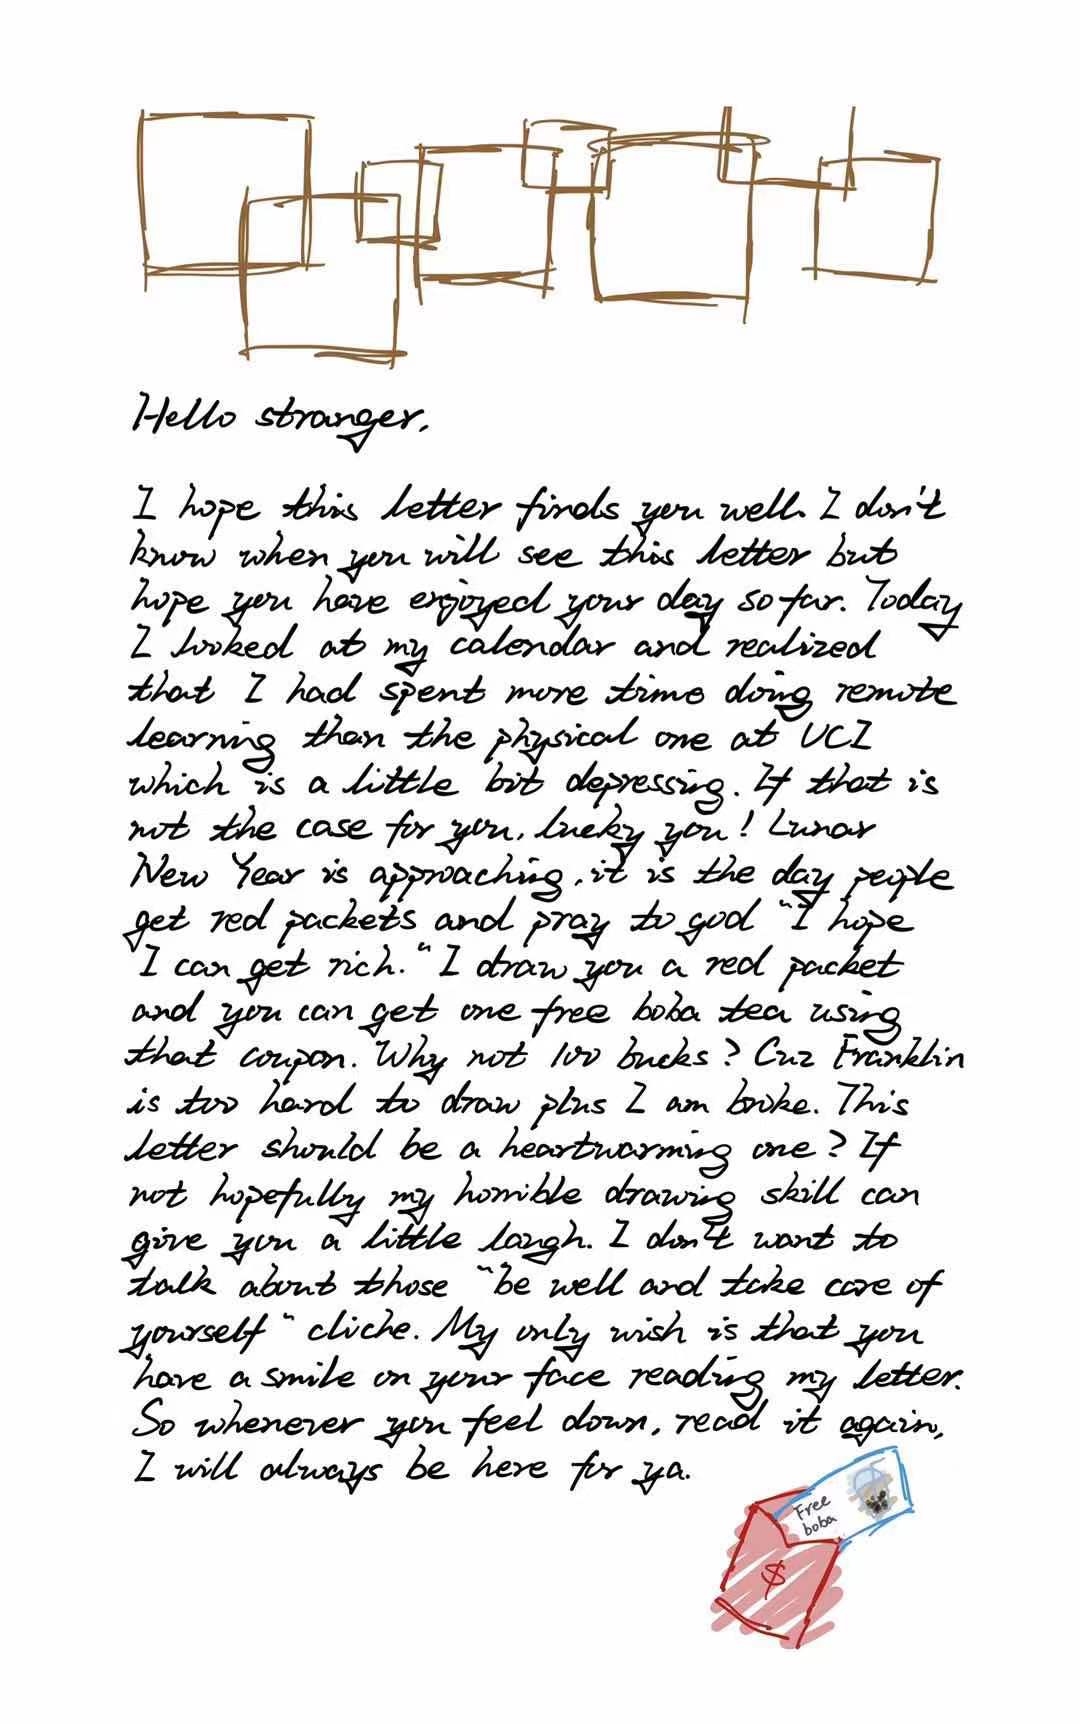 Hello stranger,
I hope this letter finds you well. I don't
know when you will see this letter but
hope you have enjoyed your day so far. Today
I looked at my calendar and realized
that I had spent more time doing remote
learning than the physical one at UCI
which is a little bit depressing. If that is
not the case for you, lucky you! Lunar
New Year is approaching, it is the day people
get red packets and pray to god "I hope
I can get rich." I draw you a red packet
and you can get one free boba tea using
that coupon. Why not 100 bucks? Cuz Franklin
is too hard to draw plus I am broke. This
letter should be a heartwarming one? If
not hopefully my horrible drawing skill can
give you a little laugh. I don't want to
talk about those "be well and take care of
yourself" cliche. My only wish is that you
have a smile on your face reading my letter.
So whenever you feel down, read it again,
I will always be here for ya.
Free
boba
$